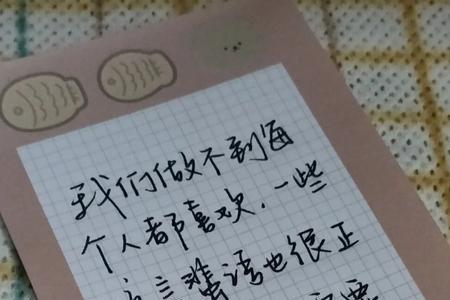 我们做不到每
个人都喜欢，一些
语也很正